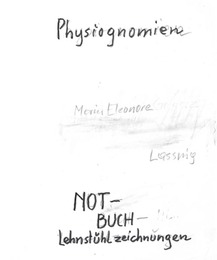 Physiognomien
Maria Eleonore
Lassnig
NOT-
BUCH-
Lehnstühlzeichnungen